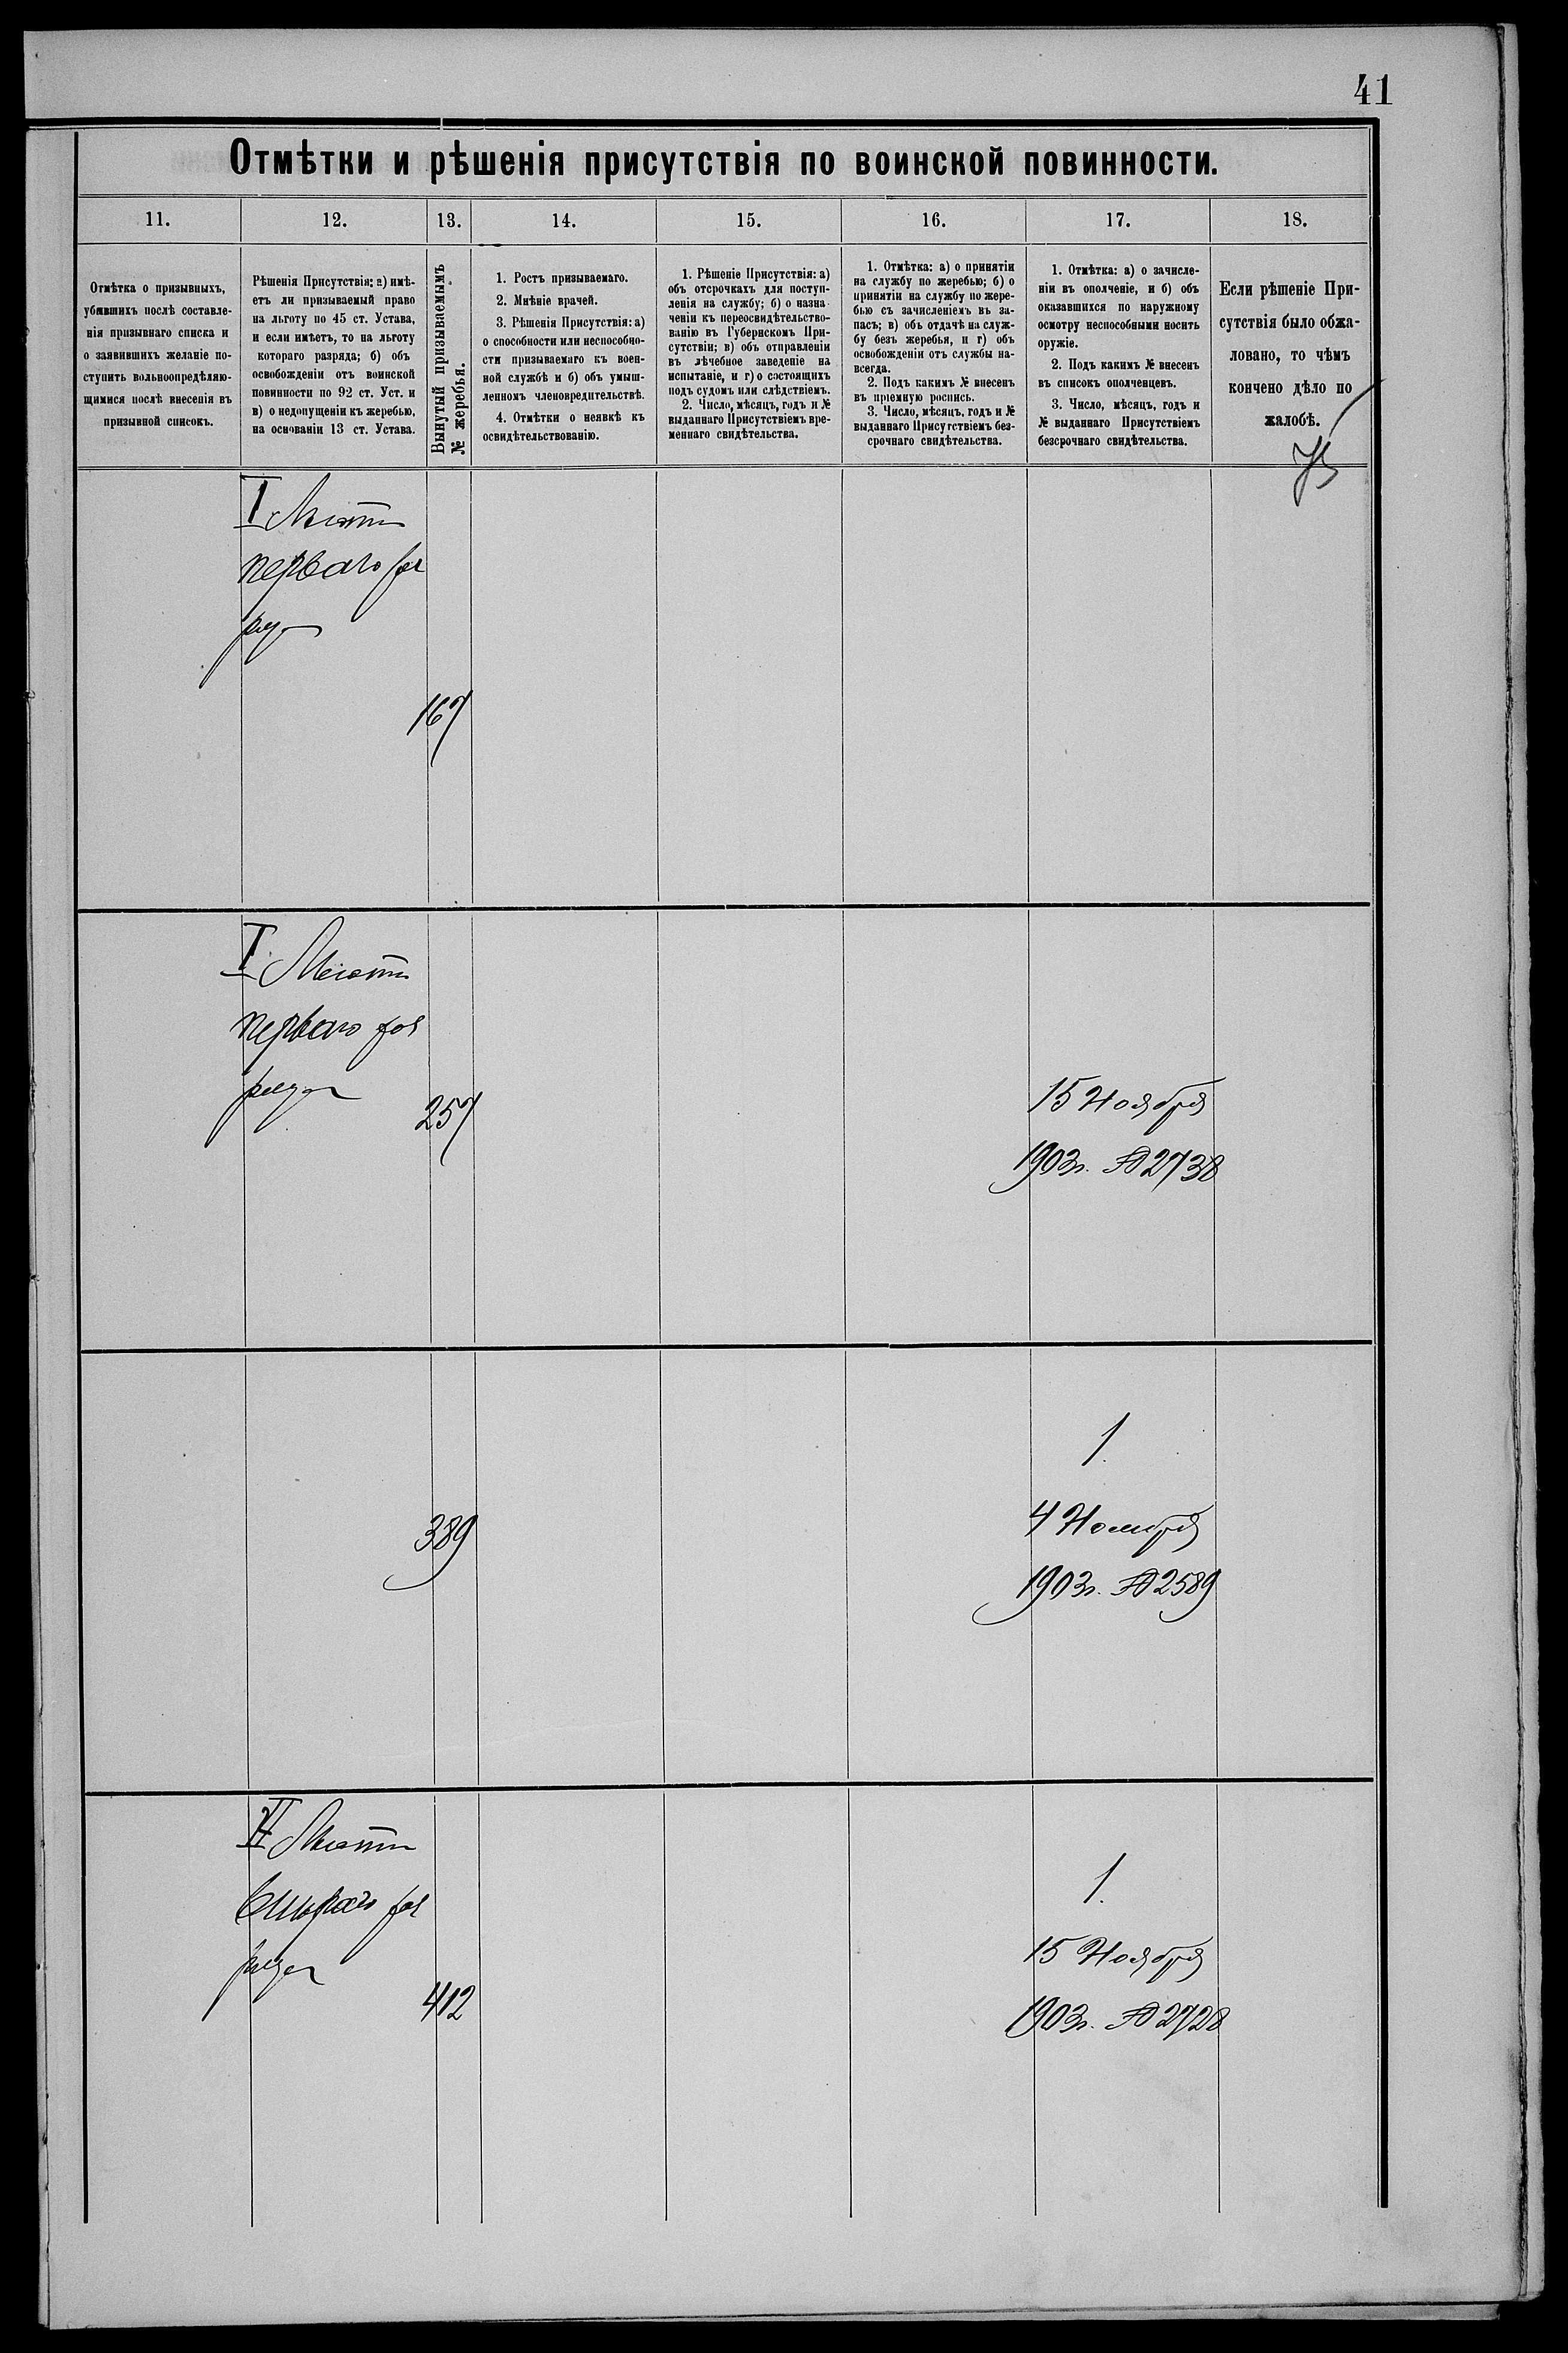 41
Отмѣтки и рѣшенія присутствія по воинской повинности.
11.
12.
13.
14.
15.
16.
17.
18.
Отмѣтка о призывныхъ,
убывшихъ послѣ составле-
нія призывнаго списка и
о заявившихъ желаніе по-
ступить вольноопредѣляю-
щимися послѣ внесенія въ
призывной списокъ.
Рѣшенія Присутствія: а) имѣ-
етъ ли призываемый право
на льготу по 45 ст. Устава,
и если имѣетъ, то на льготу
котораго разряда; б) объ
освобожденіи отъ воинской
повинности по 92 ст. Уст. и
в) о недопущеніи къ жеребью,
на основаніи 13 ст. Устава.
Вынутый призываемымъ
№ жеребья.
1. Ростъ призываемаго.
2. Мнѣніе врачей.
3. Рѣшенія Присутствія: а)
о способности или неспособно-
сти призываемаго къ воен-
ной службѣ и б) объ умыш-
ленномъ членовредительствѣ.
4. Отмѣтки о неявкѣ къ
освидѣтельствованію.
1. Рѣшеніе Присутствія: а)
объ отсрочкахъ для поступ-
ленія на службу; б) о назна-
ченіи къ переосвидѣтельство-
ванію въ Губернскомъ При-
сутствіи; в) объ отправленіи
въ лѣчебное заведеніе на
испытаніе, и г) о состоящихъ
подъ судомъ или слѣдствіемъ.
2. Число, мѣсяцъ, годъ и №
выданнаго Присутствіемъ вре-
меннаго свидѣтельства.
1. Отмѣтка: а) о принятіи
на службу по жеребью; б) о
принятіи на службу по жере-
бью съ зачисленіемъ въ за-
пасъ; в) объ отдачѣ на служ-
бу безъ жеребья, и г) объ
освобожденіи отъ службы на-
всегда.
2. Подъ какимъ № внесенъ
въ пріемную роспись.
3. Число, мѣсяцъ, годъ и №
выданнаго Присутствіемъ без-
срочнаго свидѣтельства.
1. Отмѣтка: а) о зачисле-
ніи въ ополченіе, и б) объ
оказавшихся по наружному
осмотру неспособными носить
оружіе.
2. Подъ какимъ № внесенъ
въ списокъ ополченцевъ.
3. Число, мѣсяцъ, годъ и
№ выданнаго Присутствіемъ
безсрочнаго свидѣтельства.
Если рѣшеніе При-
сутствія было обжа-
ловано, то чѣмъ
кончено дѣло по
жалобѣ.
I Льготы
перваго раз
ряда
167
I Льготы
перваго раз
ряда
257
15 Ноября
1903г. № 2738
389
1.
4 Ноября
1903г. № 2589
II Льготы
второго раз
ряда
412
1.
15 Ноября
1903г. № 2728